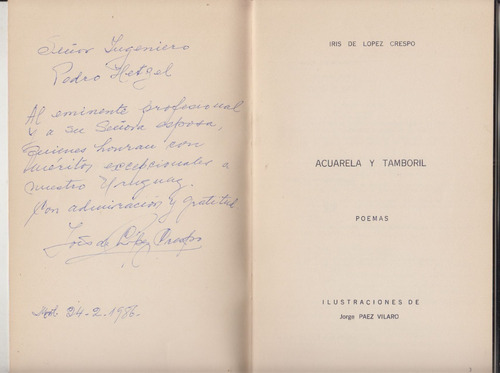 Señor Ingeniero
Pedro Hetgel
Al eminente profesional
y a su Señora esposa,
quienes honran con
méritos excepcionales a
nuestro Uruguay.
Con admiración y gratitud
Iris de López Crespo
24-2-1986.
IRIS DE LOPEZ CRESPO
ACUARELA Y TAMBORIL
POEMAS
ILUSTRACIONES DE
Jorge PAEZ VILARO